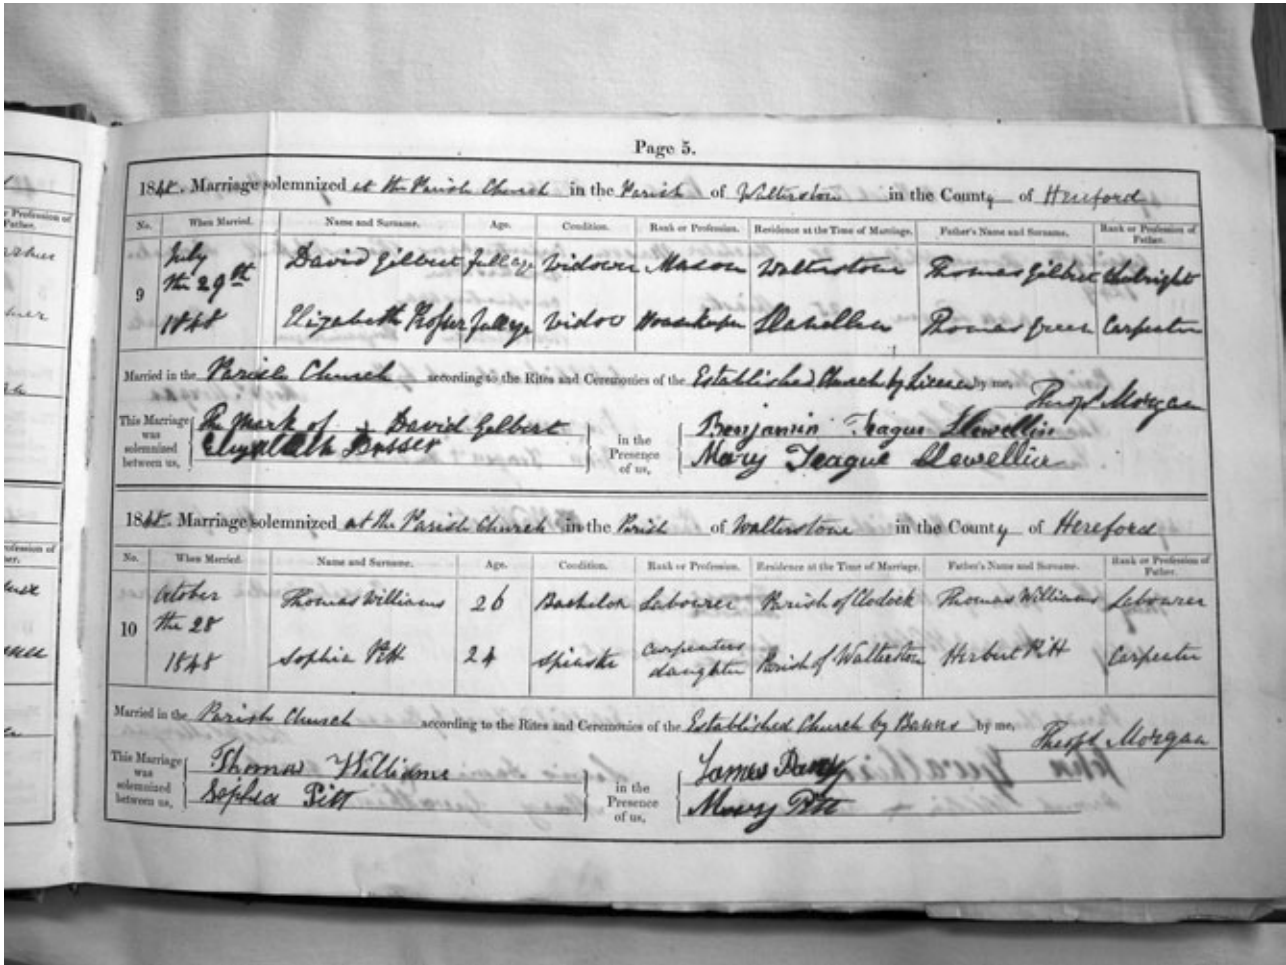 Page 5.
1848. Marriage solemnized at the Parish Church in the Parish of Walterstone in the County of Hereford
No. When Married. Name and Surname. Age. Condition. Rank or Profession. Residence at the Time of Marriage. Father's Name and Surname. Rank or Profession of Father.
9 July the 29th 1848
David Gilbert full age Widower Mason Walterstone Thomas Gilbert
Elizabeth Prosser full age Widow Housekeeper Thomas Green Carpenter
Married in the Parish Church according to the Rites and Ceremonies of the Established Church by Licence by me, Theop. Morgan
This Marriage was solemnized between us, The Mark of x David Gilbert
Elizabeth Prosser
in the Presence of us, Benjamin Teague Llewellin
Mary Teague Llewellin
1848. Marriage solemnized at the Parish Church in the Parish of Walterstone in the County of Hereford
No. When Married. Name and Surname. Age. Condition. Rank or Profession. Residence at the Time of Marriage. Father's Name and Surname. Rank or Profession of Father.
10 October the 28 1848
Thomas Williams 26 Bachelor Labourer Parish of Clodock Thomas Williams Labourer
Sophia Pitt 24 Spinster Carpenters daughter Parish of Walterstone Herbert Pitt Carpenter
Married in the Parish Church according to the Rites and Ceremonies of the Established Church by Banns by me, Theop. Morgan
This Marriage was solemnized between us, Thomas Williams
Sophia Pitt
in the Presence of us, James Parry
Mary Pitt